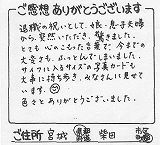 ご感想 ありがとうございます
退職の祝いとして、娘・息子夫婦
から、突然いただき、驚きました。
とても心のこもった文章で、今までの
大変さも、ふっとんでしまいました。
サイフに入るサイズの写真カードも
大事に持ち歩き、みなさんに見せて
います。
色々とありがとうございました。
ご住所 宮城 都道府県 柴田 市区町村